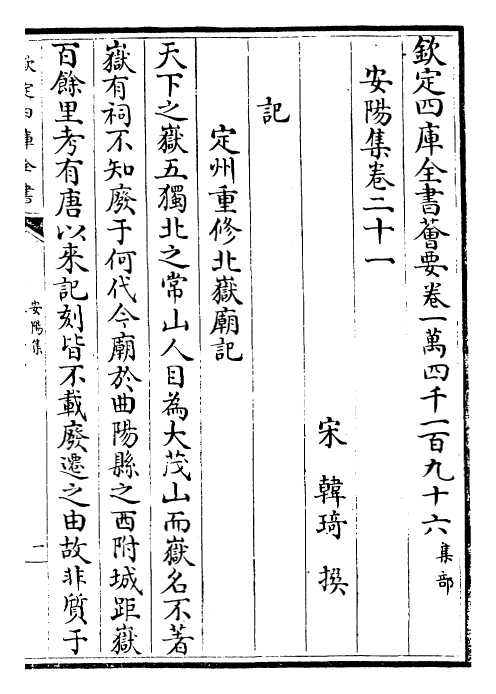 欽定四庫全書薈要卷一萬四千一百九十六集部
安陽集卷二十一
宋 韓琦 撰
記
定州重修北嶽廟記
天下之嶽五獨北之常山人目為大茂山而嶽名不著
嶽有祠不知廢于何代今廟於曲陽縣之西附城距嶽
百餘里考有唐以來記刻皆不載廢遷之由故非質于
欽定四庫全書
安陽集